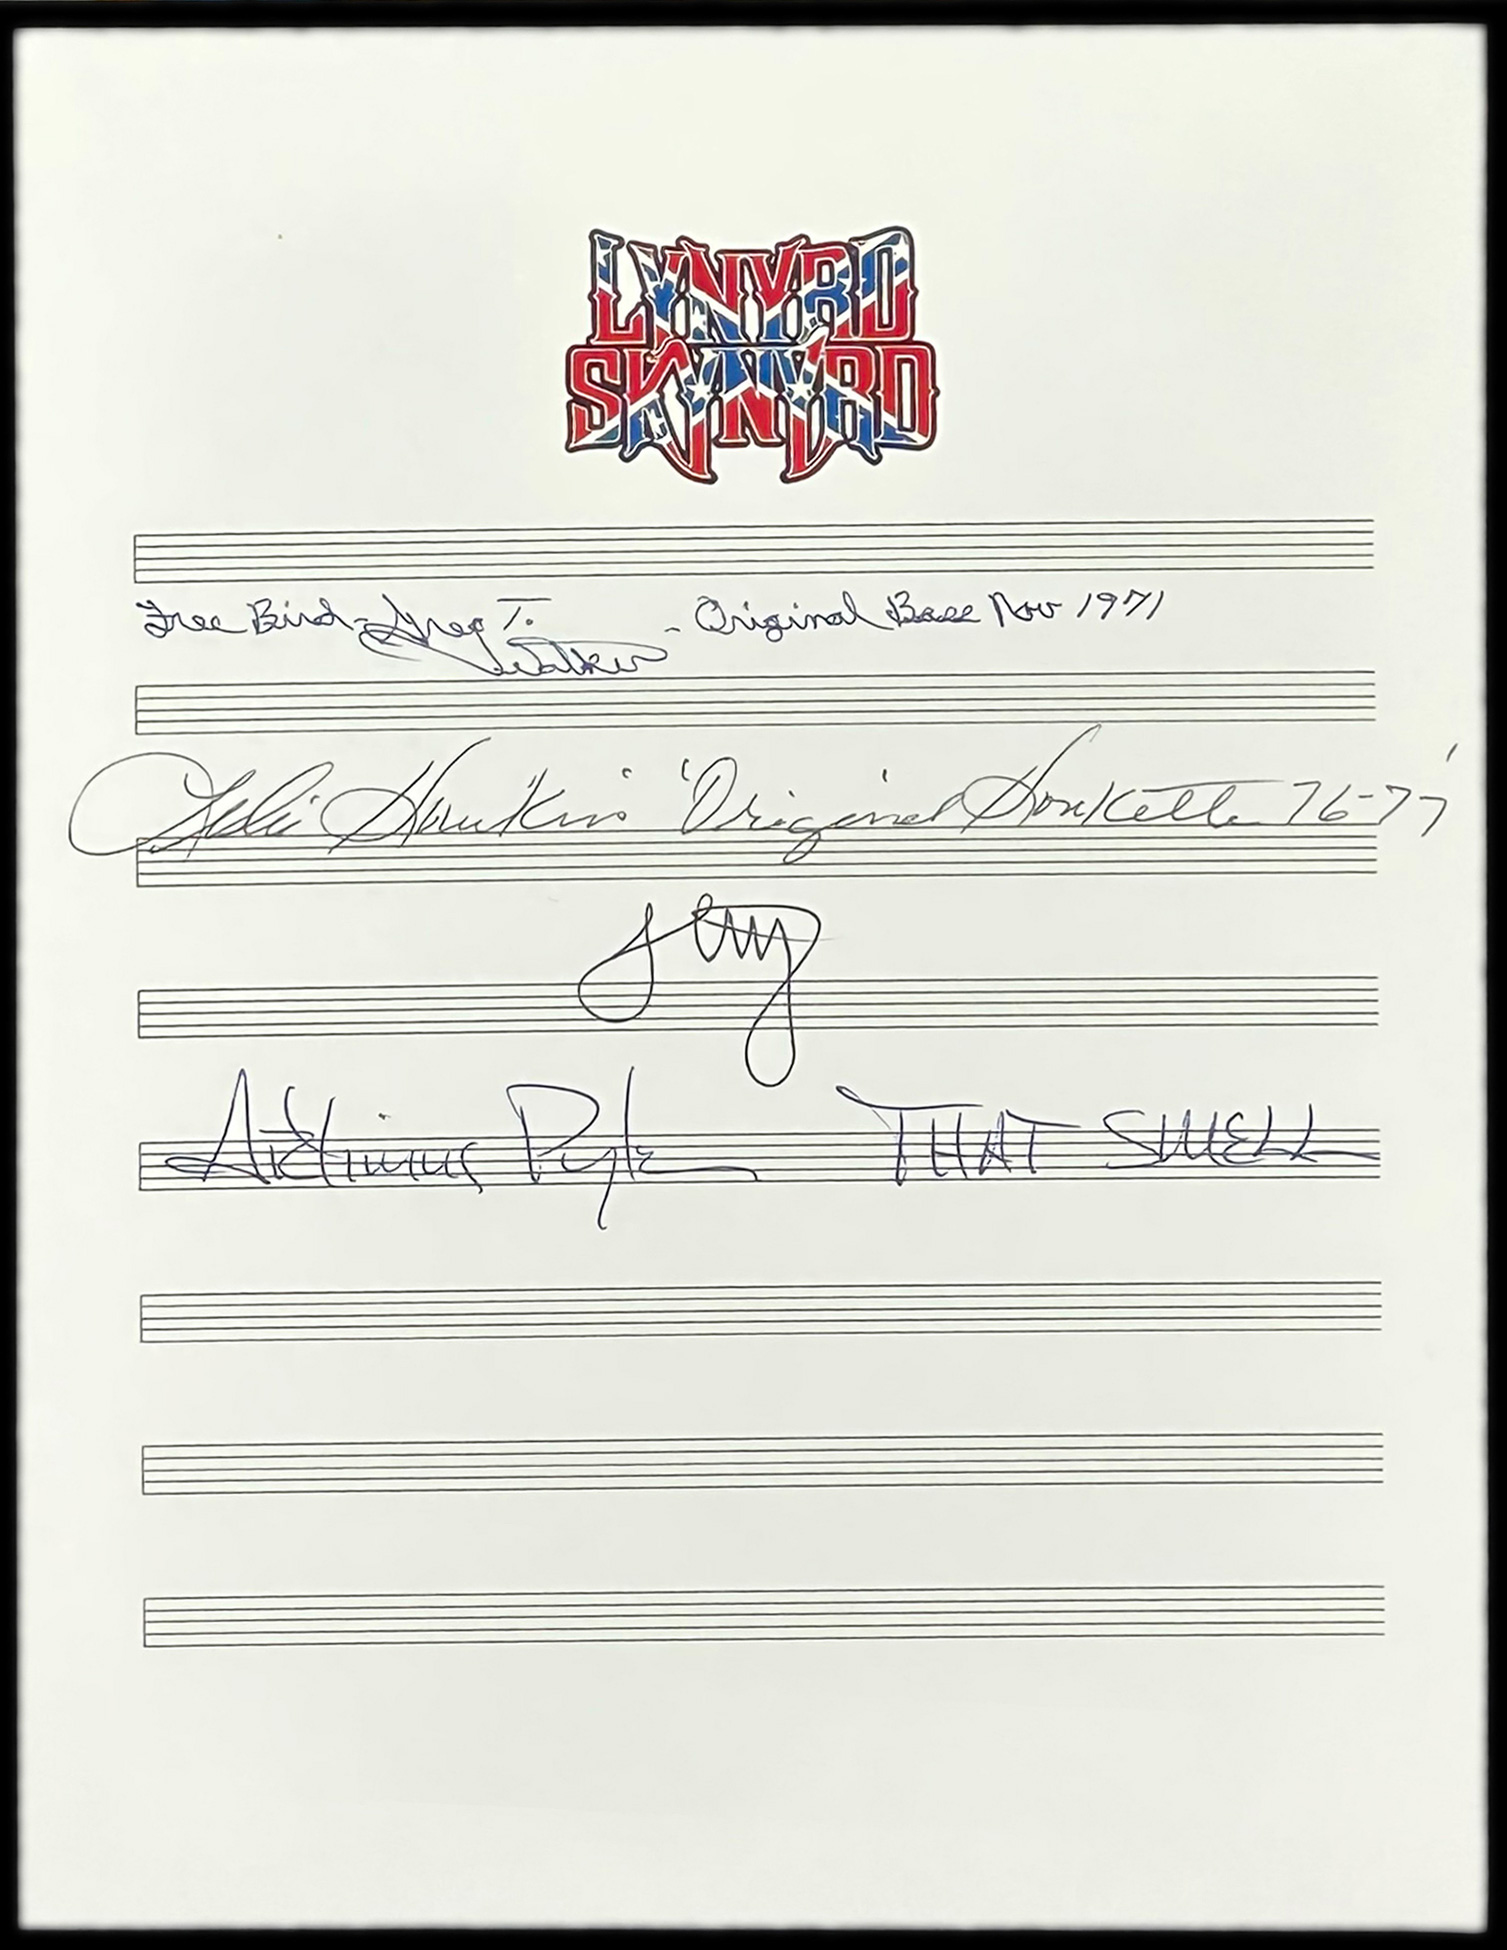 LYNYRD
SKYNYRD
Free Bird - Greg T. Walker - Original Bass Nov 1971
Leslie Hawkins 'Original Honkette 76-77'
Artimus Pyle THAT SMELL